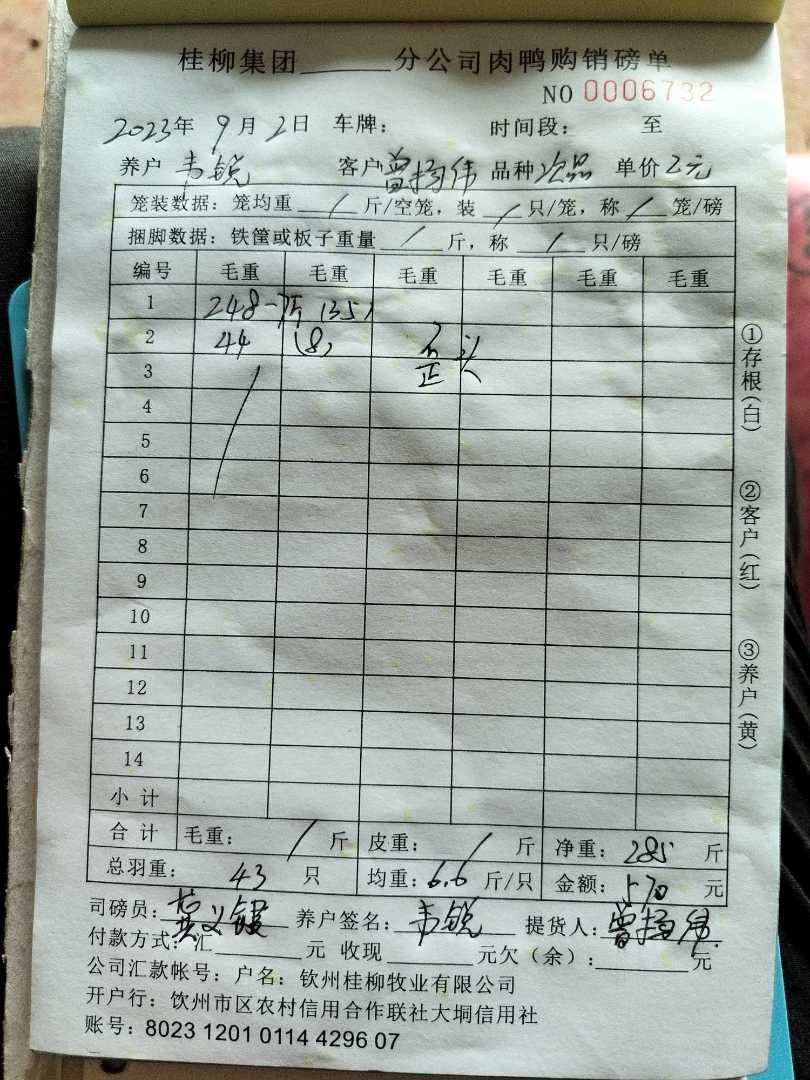 桂柳集团______分公司肉鸭购销磅单
NO 0006732
2023年 9月 2日 车牌： 时间段： 至
养户 韦锐 客户 曾扬伟 品种 次品 单价 2元
笼装数据：笼均重 / 斤/空笼，装 / 只/笼，称 / 笼/磅
捆脚数据：铁筐或板子重量 / 斤，称 / 只/磅
编号 毛重 毛重 毛重 毛重 毛重 毛重
1 248-7斤 (35)
2 44 (8) 歪头
3
4
5
6
7
8
9
10
11
12
13
14
小计
合计 毛重： / 斤 皮重： / 斤 净重： 285 斤
总羽重： 43 只 均重：6.6 斤/只 金额：570 元
司磅员： 养户签名：韦锐 提货人：曾扬伟
付款方式：汇______元 收现______元欠（余）：______元
公司汇款帐号：户名：钦州桂柳牧业有限公司
开户行：饮州市区农村信用合作联社大垌信用社
账号：8023 1201 0114 4296 07
①存根(白)
②客户(红)
③养户(黄)